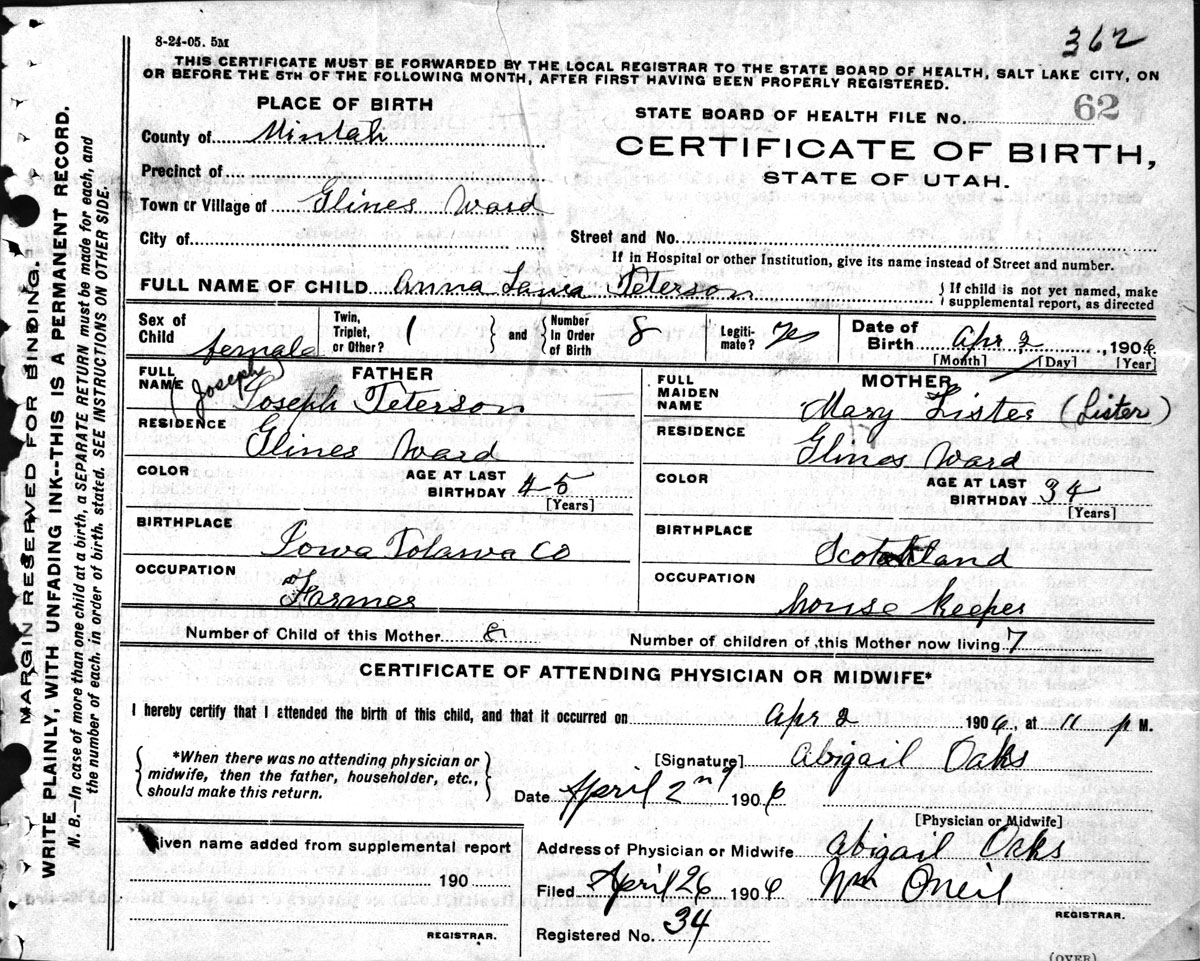 8-24-05. 5M
362
THIS CERTIFICATE MUST BE FORWARDED BY THE LOCAL REGISTRAR TO THE STATE BOARD OF HEALTH, SALT LAKE CITY, ON
OR BEFORE THE 5TH OF THE FOLLOWING MONTH, AFTER FIRST HAVING BEEN PROPERLY REGISTERED.
PLACE OF BIRTH
STATE BOARD OF HEALTH FILE No. 62
County of Uintah
CERTIFICATE OF BIRTH,
STATE OF UTAH.
Precinct of
Town or Village of Glines Ward
City of
Street and No.
If in Hospital or other Institution, give its name instead of Street and number.
FULL NAME OF CHILD Anna Laura Peterson
{If child is not yet named, make
supplemental report, as directed
Sex of Child female
Twin, Triplet, or Other? 1
} and {
Number In Order of Birth 8
Legiti-mate? Yes
Date of Birth Apr 2, 1906
[Month] [Day] [Year]
FATHER
FULL NAME (Joseph) Joseph Peterson
RESIDENCE Glines Ward
COLOR
AGE AT LAST BIRTHDAY 45
[Years]
BIRTHPLACE
Iowa
Co
OCCUPATION
Farmer
MOTHER
FULL MAIDEN NAME Mary Lister (Lister)
RESIDENCE Glines Ward
COLOR
AGE AT LAST BIRTHDAY 34
[Years]
BIRTHPLACE
Scotland
OCCUPATION
house keeper
Number of Child of this Mother 8
Number of children of this Mother now living 7
CERTIFICATE OF ATTENDING PHYSICIAN OR MIDWIFE*
I hereby certify that I attended the birth of this child, and that it occurred on Apr 2 1906, at 11 p M.
{*When there was no attending physician or
midwife, then the father, householder, etc.,
should make this return.}
[Signature] Abigail Oaks
Date April 2nd 1906
[Physician or Midwife]
Given name added from supplemental report
190
REGISTRAR.
Address of Physician or Midwife Abigail Oaks
Filed April 26 1906 Wm ONeil
REGISTRAR.
Registered No. 34
(OVER)
MARGIN RESERVED FOR BINDING.
WRITE PLAINLY, WITH UNFADING INK--THIS IS A PERMANENT RECORD.
N. B.—In case of more than one child at a birth, a SEPARATE RETURN must be made for each, and
the number of each, in order of birth, stated. SEE INSTRUCTIONS ON OTHER SIDE.